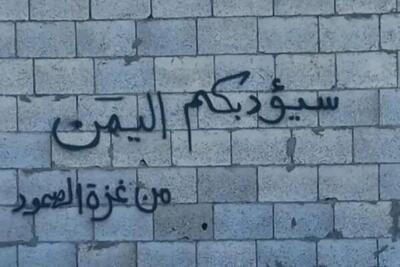 سيؤدبكم اليمن
من غزة الصمود